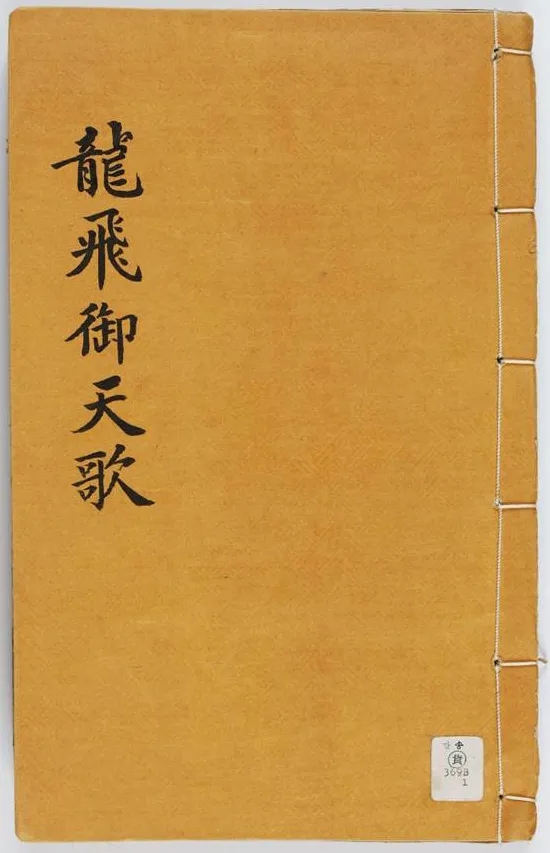 龍飛御天歌
貴
369B
1